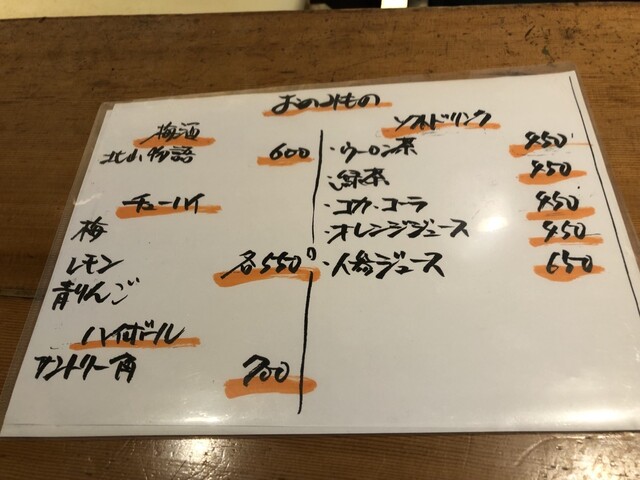 おのみもの
梅酒
北山物語 600
チューハイ
梅
レモン 各550
青りんご
ハイボール
サントリー角 700
ソフトドリンク
・ウーロン茶 450
・緑茶 450
・コカ・コーラ 450
・オレンジジュース 450
・人参ジュース 650